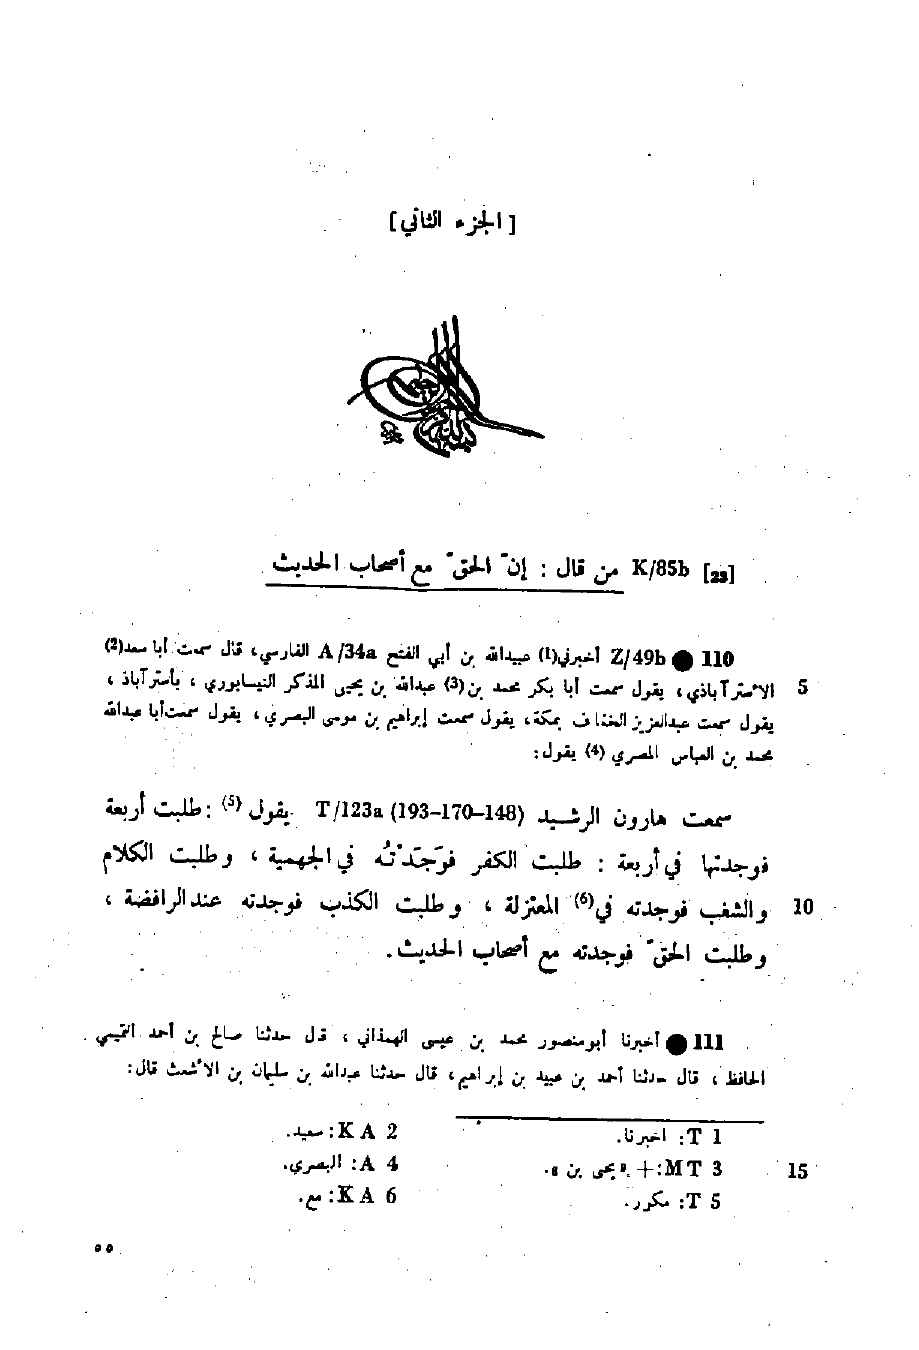 [الجزء الثاني]
[23] K/85b من قال : إنّ الحقّ مع أصحاب الحديث
110 ● Z/49b أخبرني(1) عبيدالله بن أبي الفتح A/34a الفارسي، قال سمعت أبا سعد(2)
5 الاسترآباذي، يقول سمعت أبا بكر محمد بن(3) عبدالله بن يحيى المذكر النيسابوري ، بأسترآباذ ،
يقول سمعت عبدالعزيز الخفاف بمكة، يقول سمعت إبراهيم بن موسى البصري ، يقول سمعت أبا عبدالله
محمد بن العباس المصري (4) يقول:
سمعت هارون الرشيد (148–170–193) T/123a يقول (5) : طلبت أربعة
فوجدتها في أربعة : طلبت الكفر فوَجَدْتُه في الجهمية ، وطلبت الكلام
10 والشغب فوجدته في(6) المعتزلة ، وطلبت الكذب فوجدته عند الرافضة ،
وطلبت الحقّ فوجدته مع أصحاب الحديث.
111 ● أخبرنا أبو منصور محمد بن عيسى الهمذاني ، قال حدثنا صالح بن أحمد التميمي
الحافظ ، قال حدثنا أحمد بن عبيد بن إبراهيم، قال حدثنا عبدالله بن سليمان بن الأشعث قال:
1 T: اخبرنا.
2 K A: سعيد.
15 3 M T: + «يحيى بن».
4 A: البصري.
5 T: مكرر.
6 K A: مع.
٥٥